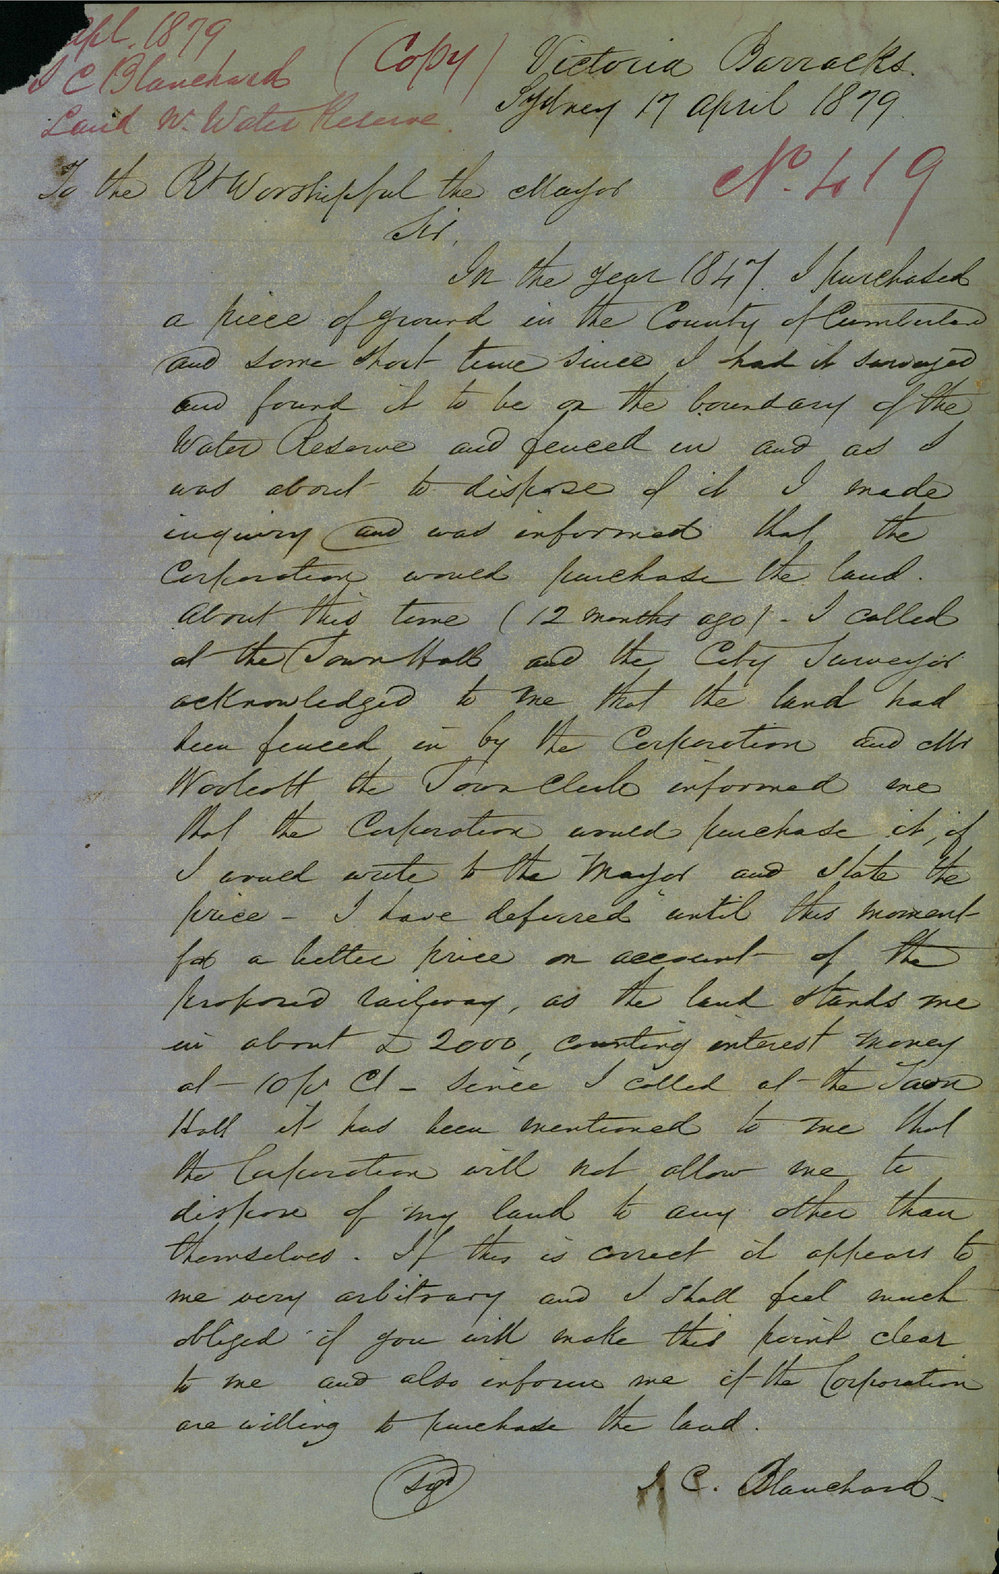 Apl. 1879
J C Blanchard
Land W. Water Reserve.
(Copy)
Victoria Barracks.
Sydney 17 April 1879.
No. 419
To the Rt Worshipful the Mayor
Sir,
In the year 1847. I purchased
a piece of ground in the County of Cumberland
and some short time since I had it surveyed
and found it to be on the boundary of the
Water Reserve and fenced in and as I
was about to dispose of it I made
inquiry and was informed that the
Corporation would purchase the land.
About this time (12 months ago) - I called
at the Town Hall and the City Surveyor
acknowledged to me that the land had
been fenced in by the Corporation and Mr
Woolcott the Town Clerk informed me
that the Corporation would purchase it, if
I would write to the Mayor and state the
price - I have deferred until this moment
for a better price on account of the
proposed railway, as the land stands me
in about £2000, counting interest money
at 10 pr Ct - Since I called at the Town
Hall it has been mentioned to me that
the Corporation will not allow me to
dispose of my land to any other than
themselves. If this is correct it appears to
me very arbitrary and I shall feel much
obliged if you will make this point clear
to me and also inform me if the Corporation
are willing to purchase the land.
(Sgd) J. C. Blanchard